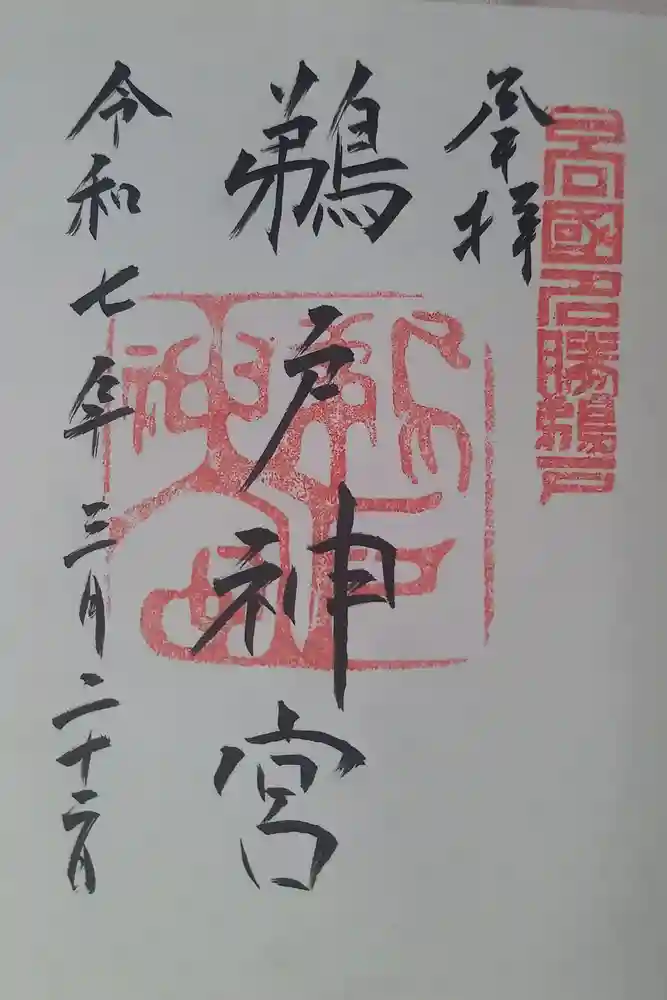 日向國名勝鵜戸
奉拝
鵜戸神宮
鵜戸神宮
令和七年三月二十二日